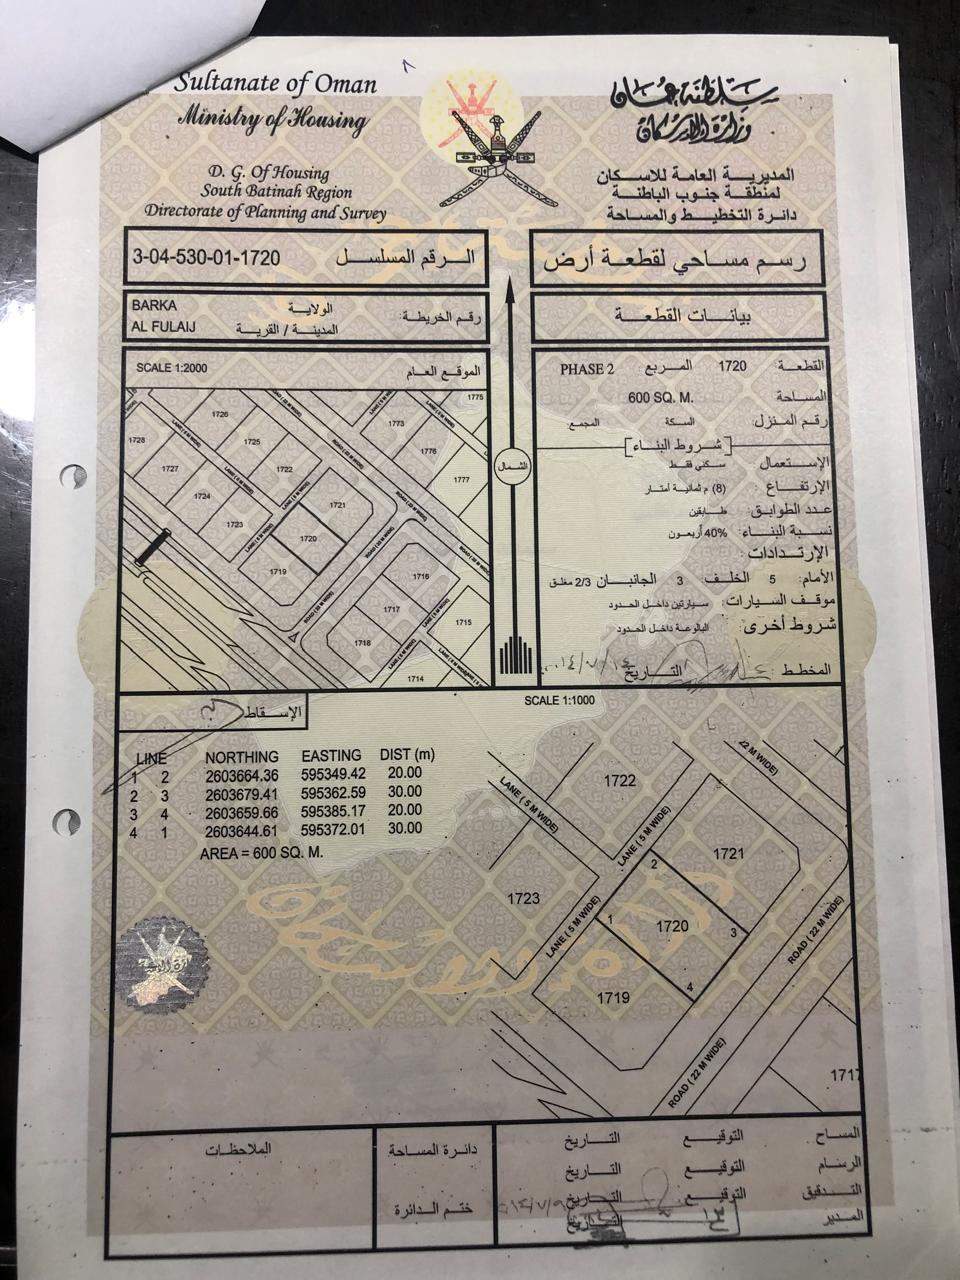 Sultanate of Oman
Ministry of Housing
D. G. Of Housing
South Batinah Region
Directorate of Planning and Survey
سلطنة عمان
وزارة الإسكان
المديرية العامة للاسكان
لمنطقة جنوب الباطنة
دائرة التخطيط والمساحة
3-04-530-01-1720 الرقم المسلسل
رسم مساحي لقطعة أرض
BARKA الولاية
AL FULAIJ المدينة / القرية
رقم الخريطة:
بيانات القطعة
SCALE 1:2000 الموقع العام
1775
1726
1773
1728
1725
1776
1727
1722
1777
1724
1721
1723
1720
1719
1716
1717
1715
1718
1714
LANE (5 M WIDE)
ROAD (22 M WIDE)
الشمال
القطعة: 1720 المربع PHASE 2
المساحة 600 SQ. M.
رقم المنزل: السكة المجمع:
[شروط البناء]
الإستعمال: سكني فقط
الإرتفاع: (8) م ثمانية أمتار
عدد الطوابق: طابقين
نسبة البناء: 40% أربعون
الإرتدادات:
الأمام: 5 الخلف 3 الجانبان 2/3 مغلق
موقف السيارات: سيارتين داخل الحدود
شروط أخرى: البالوعة داخل الحدود
المخطط: التاريخ
الإسقاط
SCALE 1:1000
LINE NORTHING EASTING DIST (m)
1 2 2603664.36 595349.42 20.00
2 3 2603679.41 595362.59 30.00
3 4 2603659.66 595385.17 20.00
4 1 2603644.61 595372.01 30.00
AREA = 600 SQ. M.
22 M WIDE)
1722
LANE ( 5 M WIDE)
LANE ( 5 M WIDE)
1721
2
1723
LANE ( 5 M WIDE)
1
1720
3
ROAD ( 22 M WIDE)
4
1719
ROAD ( 22 M WIDE)
1717
الملاحظات
دائرة المساحة
ختم الدائرة
المساح التوقيع التاريخ
الرسام التوقيع التاريخ
التدقيق التوقيع التاريخ
المدير التاريخ